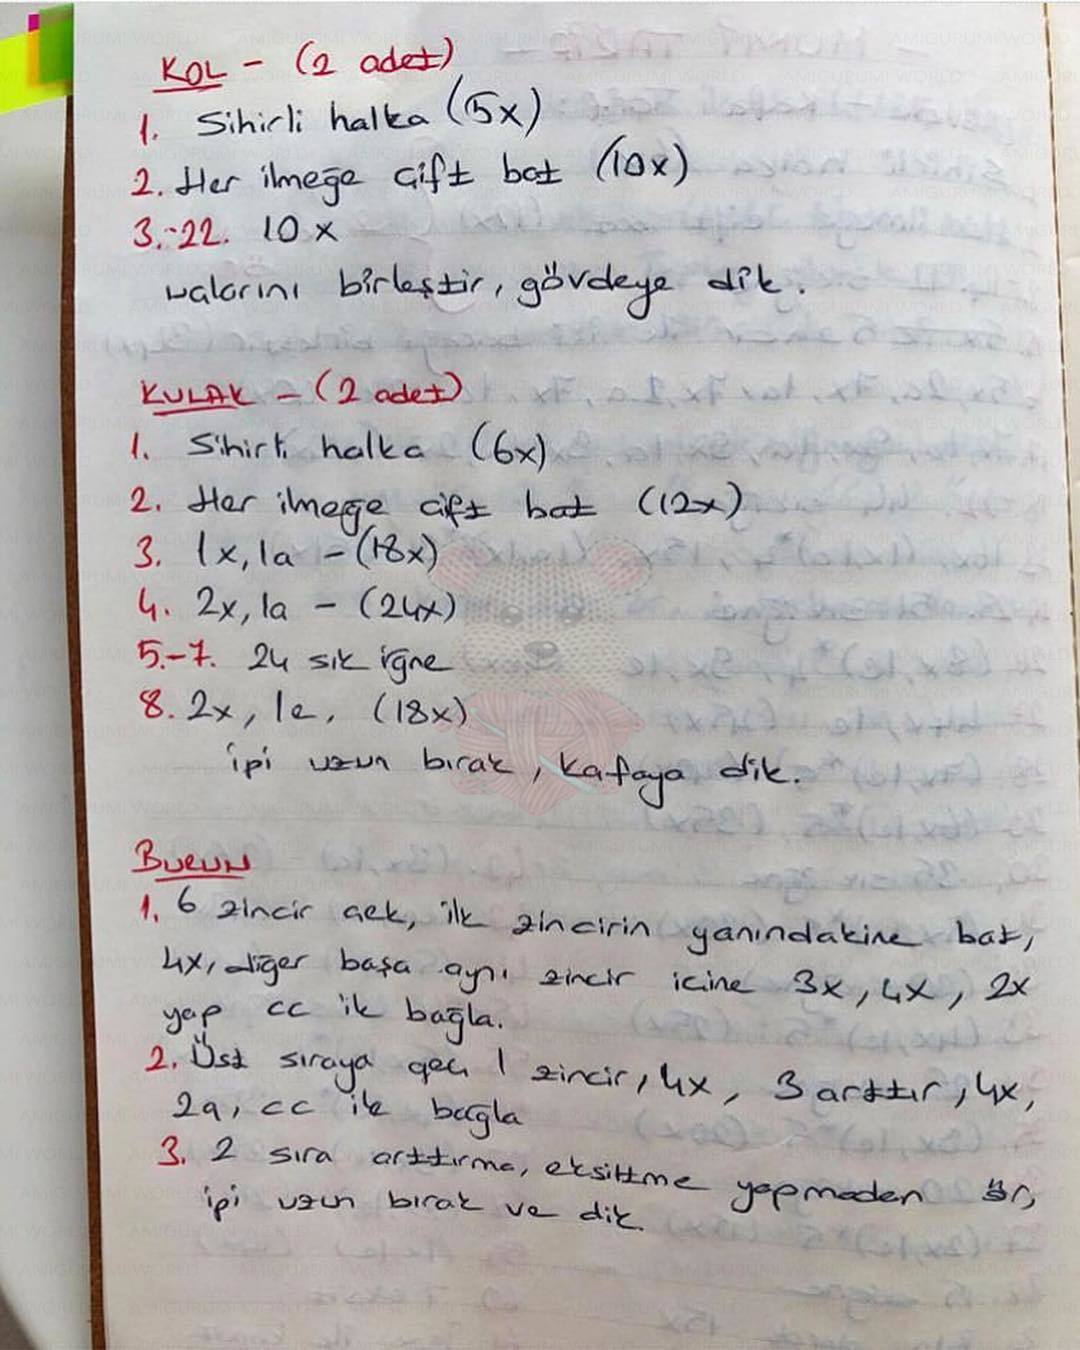 KOL - (2 adet)
1. Sihirli halka (5x)
2. Her ilmeğe çift bat (10x)
3.-22. 10x
uçlarını birleştir, gövdeye dik.
KULAK - (2 adet)
1. Sihirli halka (6x)
2. Her ilmeğe çift bat (12x)
3. 1x, 1a - (18x)
4. 2x, 1a - (24x)
5.-7. 24 sık iğne
8. 2x, 1e, (18x)
ipi uzun bırak, kafaya dik.
BURUN
1. 6 zincir çek, ilk zincirin yanındakine bat,
4x, diğer başa aynı zincir içine 3x, 4x, 2x
yap cc ile bağla.
2. Üst sıraya geç 1 zincir, 4x, 3 arttır, 4x,
2a, cc ile bağla
3. 2 sıra arttırma, eksiltme yapmadan ör,
ipi uzun bırak ve dik.